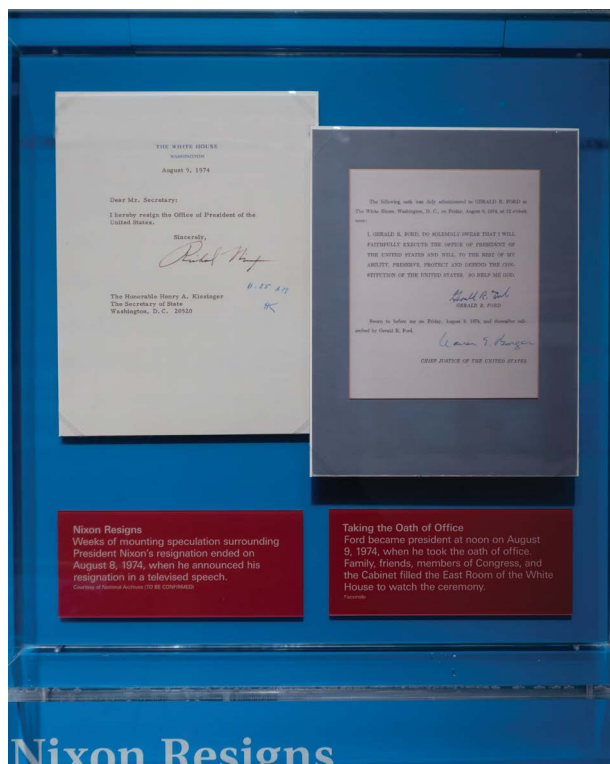 THE WHITE HOUSE
WASHINGTON
August 9, 1974
Dear Mr. Secretary:
I hereby resign the Office of President of the
United States.
Sincerely,
11.35 AM
HK
The Honorable Henry A. Kissinger
The Secretary of State
Washington, D. C. 20520
The following oath was duly administered to GERALD R. FORD at
The White House, Washington, D. C., on Friday, August 9, 1974, at 12 o'clock
noon:
I, GERALD R. FORD, DO SOLEMNLY SWEAR THAT I WILL
FAITHFULLY EXECUTE THE OFFICE OF PRESIDENT OF
THE UNITED STATES AND WILL TO THE BEST OF MY
ABILITY, PRESERVE, PROTECT AND DEFEND THE CON-
STITUTION OF THE UNITED STATES. SO HELP ME GOD.
Gerald R. Ford
GERALD R. FORD
Sworn to before me on Friday, August 9, 1974, and thereafter sub-
scribed by Gerald R. Ford.
Warren E. Burger
CHIEF JUSTICE OF THE UNITED STATES.
Nixon Resigns
Weeks of mounting speculation surrounding
President Nixon's resignation ended on
August 8, 1974, when he announced his
resignation in a televised speech.
Courtesy of National Archives (TO BE CONFIRMED)
Taking the Oath of Office
Ford became president at noon on August
9, 1974, when he took the oath of office.
Family, friends, members of Congress, and
the Cabinet filled the East Room of the White
House to watch the ceremony.
Facsimile
Nixon Resigns